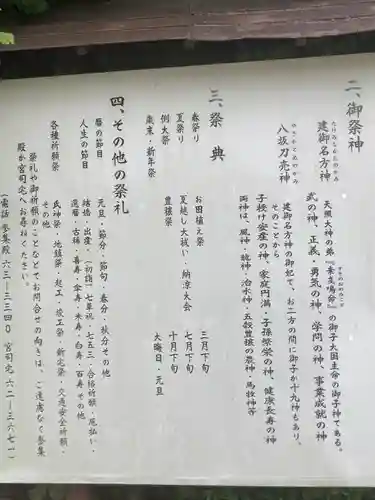 二、御祭神
建御名方神
たけみなかたのかみ
天照大神の弟『素戔鳴命』の御子大国主命の御子神である。
すさのおのみこと
武の神、正義・勇気の神、学問の神、事業成就の神
八坂刀売神
やさかとめのかみ
建御名方神の御妃で、お二方の間に御子が十九神もあり、
そのことから
子授け安産の神、家庭円満・子孫繁栄の神、健康長寿の神
両神は、風神・航神・治水神・五穀豊穣の農神・馬牧神等
三、祭典
春祭り お田植え祭 三月下旬
夏祭り 夏越し大祓い・納涼大会 七月下旬
例大祭 豊穣祭 十月下旬
歳末・新年祭 大晦日・元旦
四、その他の祭礼
暦の節目 元旦・節分・節句・春分・秋分その他
人生の節目 結婚・出産・(初詣)七草祝・七五三・合格祈願・厄払い・
還暦・古稀・喜寿・傘寿・米寿・白寿・百寿その他
各種祈願祭 氏神祭・地鎮祭・起工・竣工祭・新宅祭・交通安全祈願・
その他
祭礼や御祈願のことなどでお問合せの向きは、ご遠慮なく参集
殿か宮司宅へお尋ねください。
(電話 参集殿六三—三三四〇 宮司宅六二—三六七一)